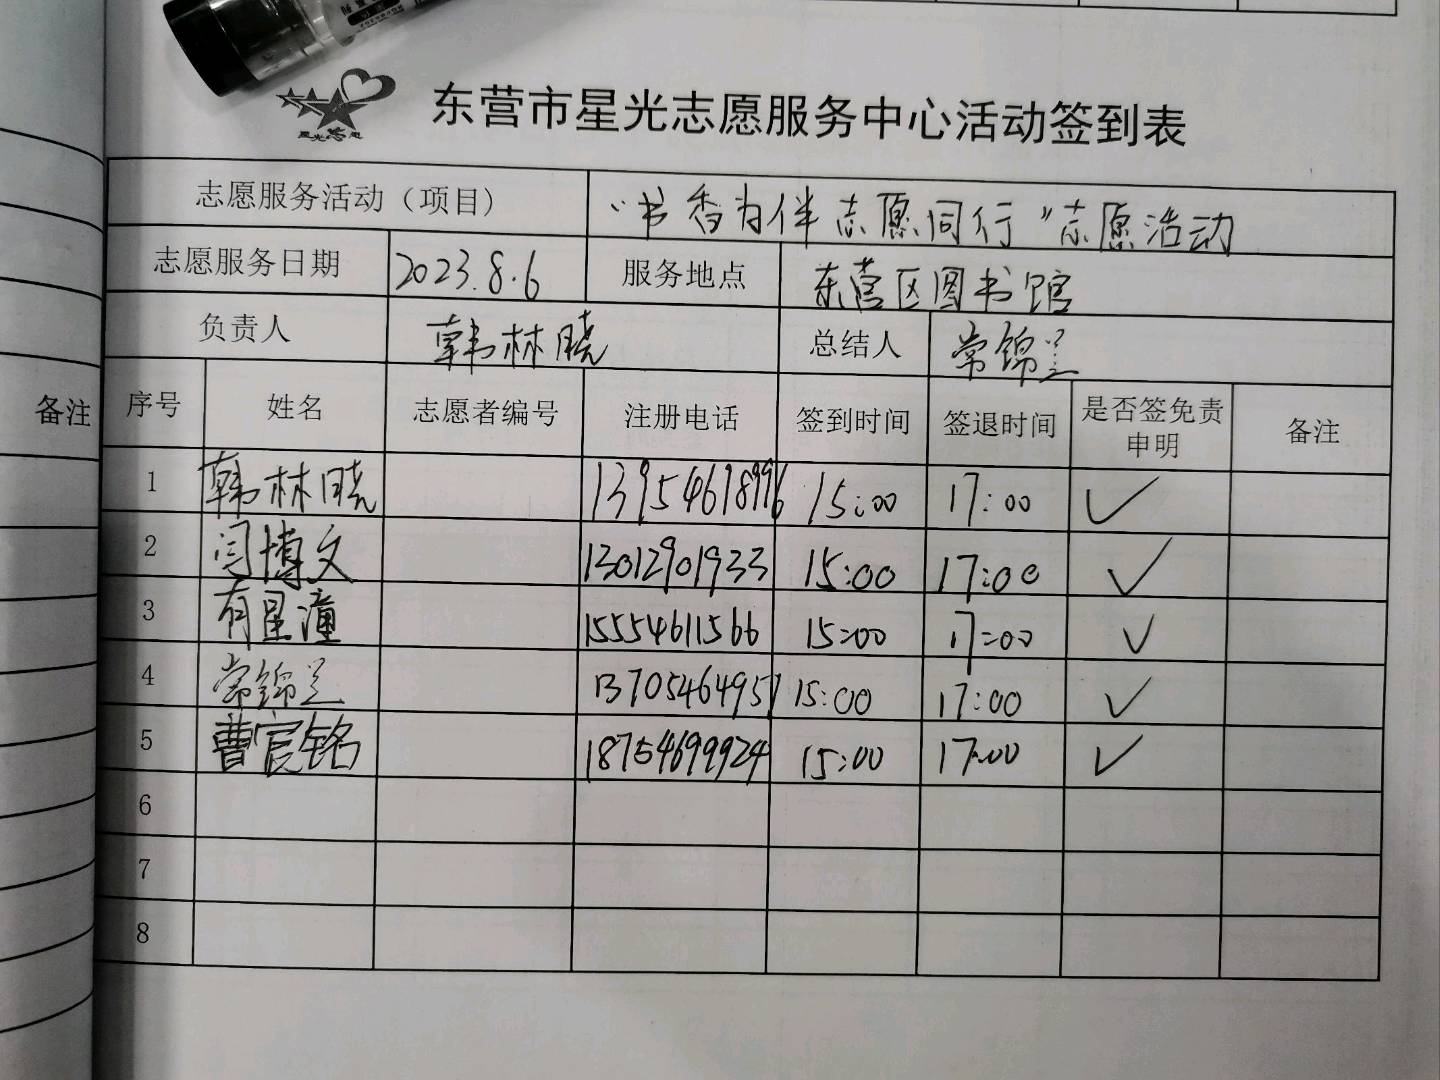 星光志愿
东营市星光志愿服务中心活动签到表
志愿服务活动（项目） “书香为伴 志愿同行”志愿活动
志愿服务日期 2023.8.6 服务地点 东营区图书馆
负责人 韩林晓 总结人 常锦兰
备注 序号 姓名 志愿者编号 注册电话 签到时间 签退时间 是否签免责申明 备注
1 韩林晓 13954618996 15:00 17:00 ✓
2 闫博文 13012901933 15:00 17:00 ✓
3 有星潼 15554611566 15:00 17:00 ✓
4 常锦兰 13705464957 15:00 17:00 ✓
5 曹宸铭 18754699924 15:00 17:00 ✓
6
7
8